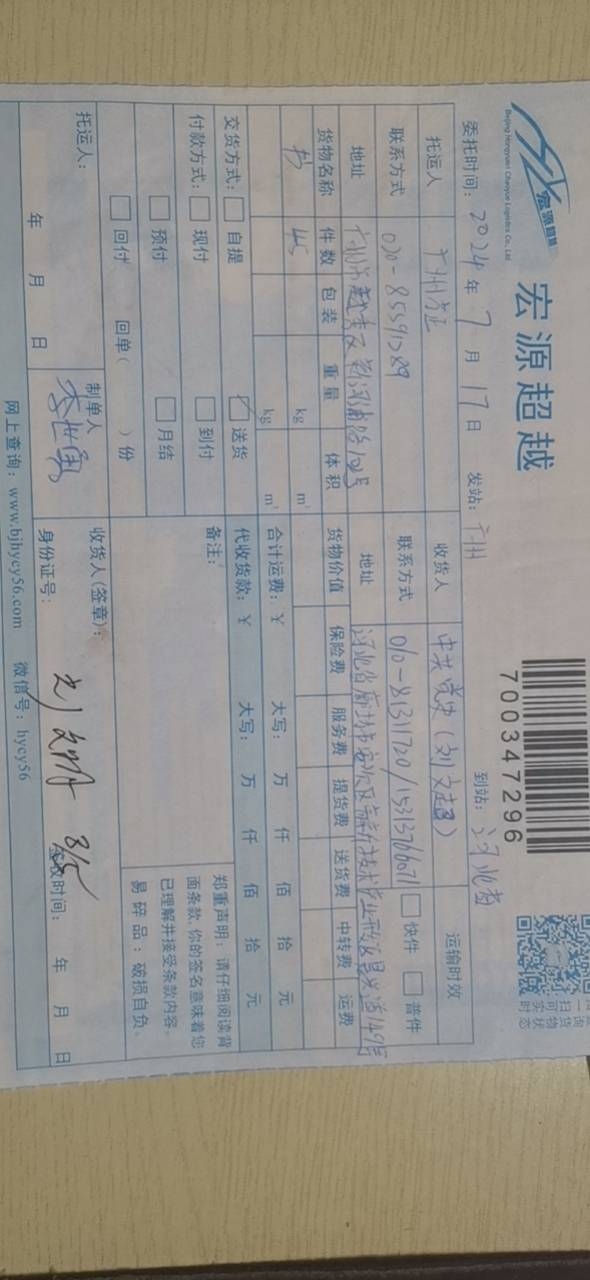 宏源超越
Beijing Hongyuan Chaoyue Logistics Co., Ltd
宏源超越
7 0 0 3 4 7 2 9 6
委托时间: 2024 年 7 月 17 日 发站: 广州 到站: 河北省
托运人 广州 收货人 中共党史(刘文超) 运输时效
联系方式 020-85591289 联系方式 010-81311720/15313766071 快件 普件
地址 广州市 地址 河北省廊坊市安次区高新技术产业 晨光道149号
货物名称 件数 包装 重量 体积 货物价值 保险费 服务费 提货费 送货费 中转费 运费
书 45 kg m³
kg m³ 合计运费: ¥ 大写: 万 仟 佰 拾 元
交货方式: 自提 送货 代收货款: ¥ 大写: 万 仟 佰 拾 元
付款方式: 现付 到付 备注:
预付 月结
回付 回单( )份
郑重声明: 请仔细阅读背
面条款,你的签名意味着您
已理解并接受条款内容。
易碎品: 破损自负。
托运人: 制单人 收货人(签章):
年 月 日 身份证号: 签收时间: 年 月 日
网上查询: www.bjhycy56.com 微信号: hycy56